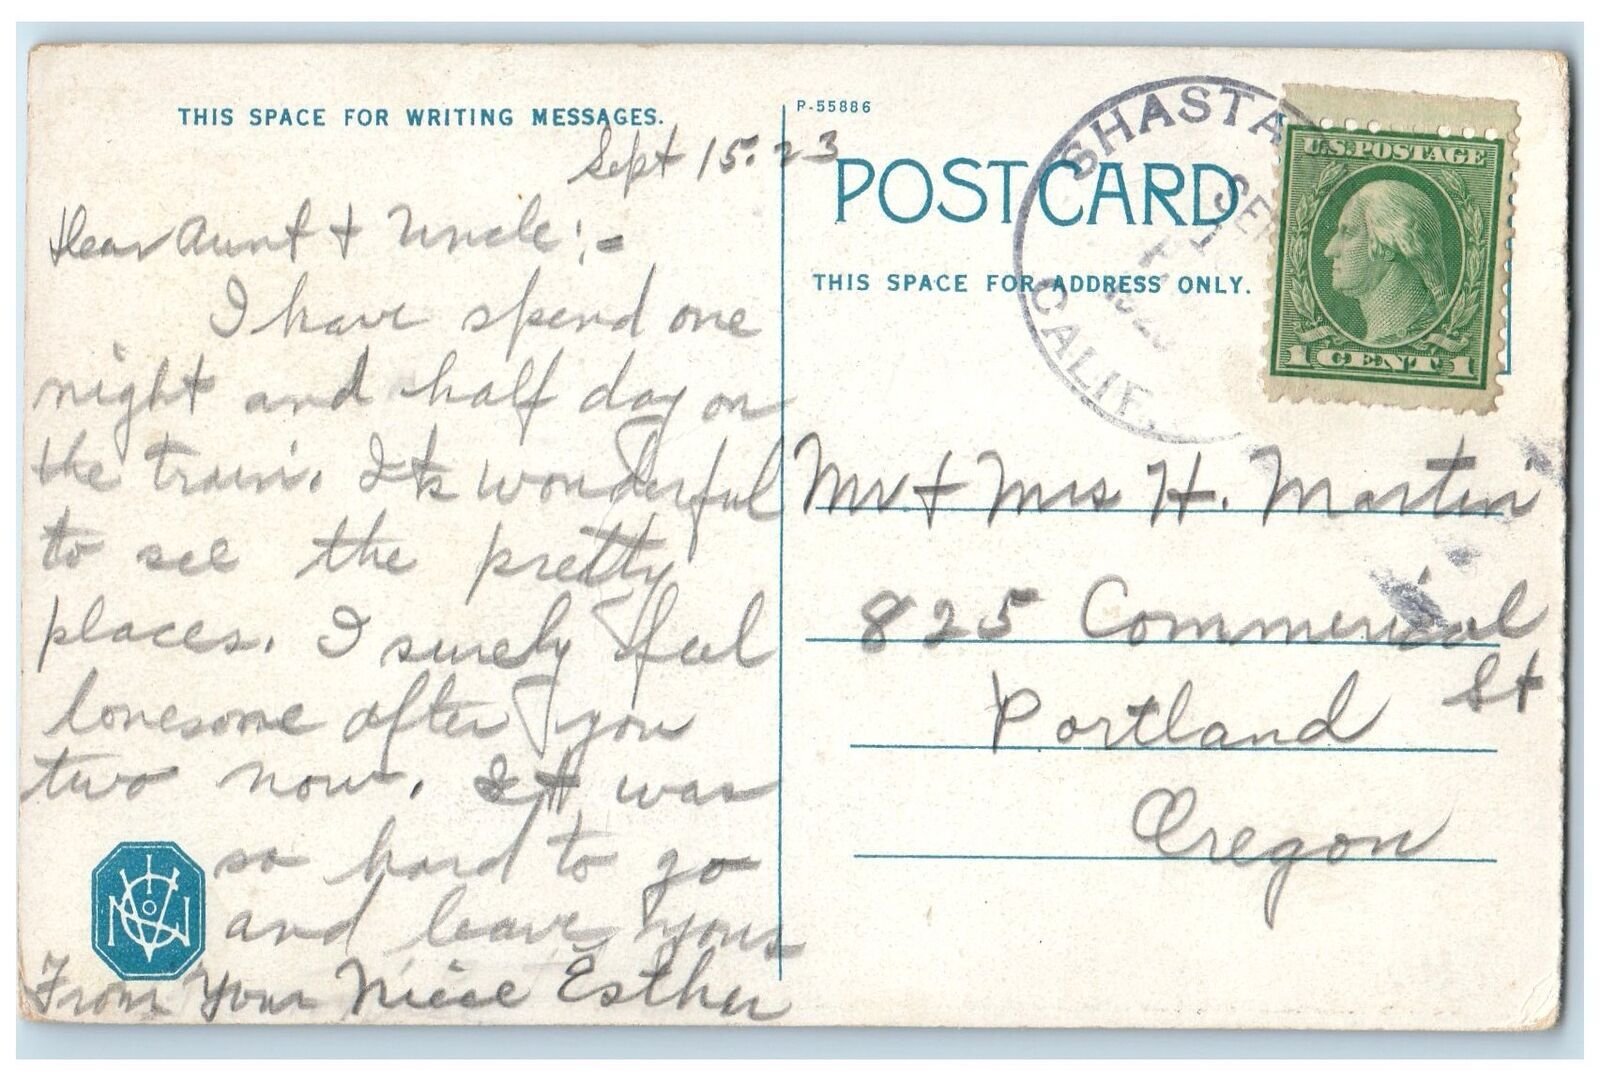 THIS SPACE FOR WRITING MESSAGES.
Sept 15. 23
Dear Aunt + Uncle:-
I have spend one
night and half day on
the train. Its wonderful
to see the pretty
places. I surely feel
lonesome after you
two now. It was
so hard to go
and leave yous
From Your Niece Esther
P-55886
POST CARD
THIS SPACE FOR ADDRESS ONLY.
SHASTA
SEP
CALIF.
U.S. POSTAGE
1 CENT 1
Mr + Mrs H. Martin
825 Commerical
St
Portland
Oregon